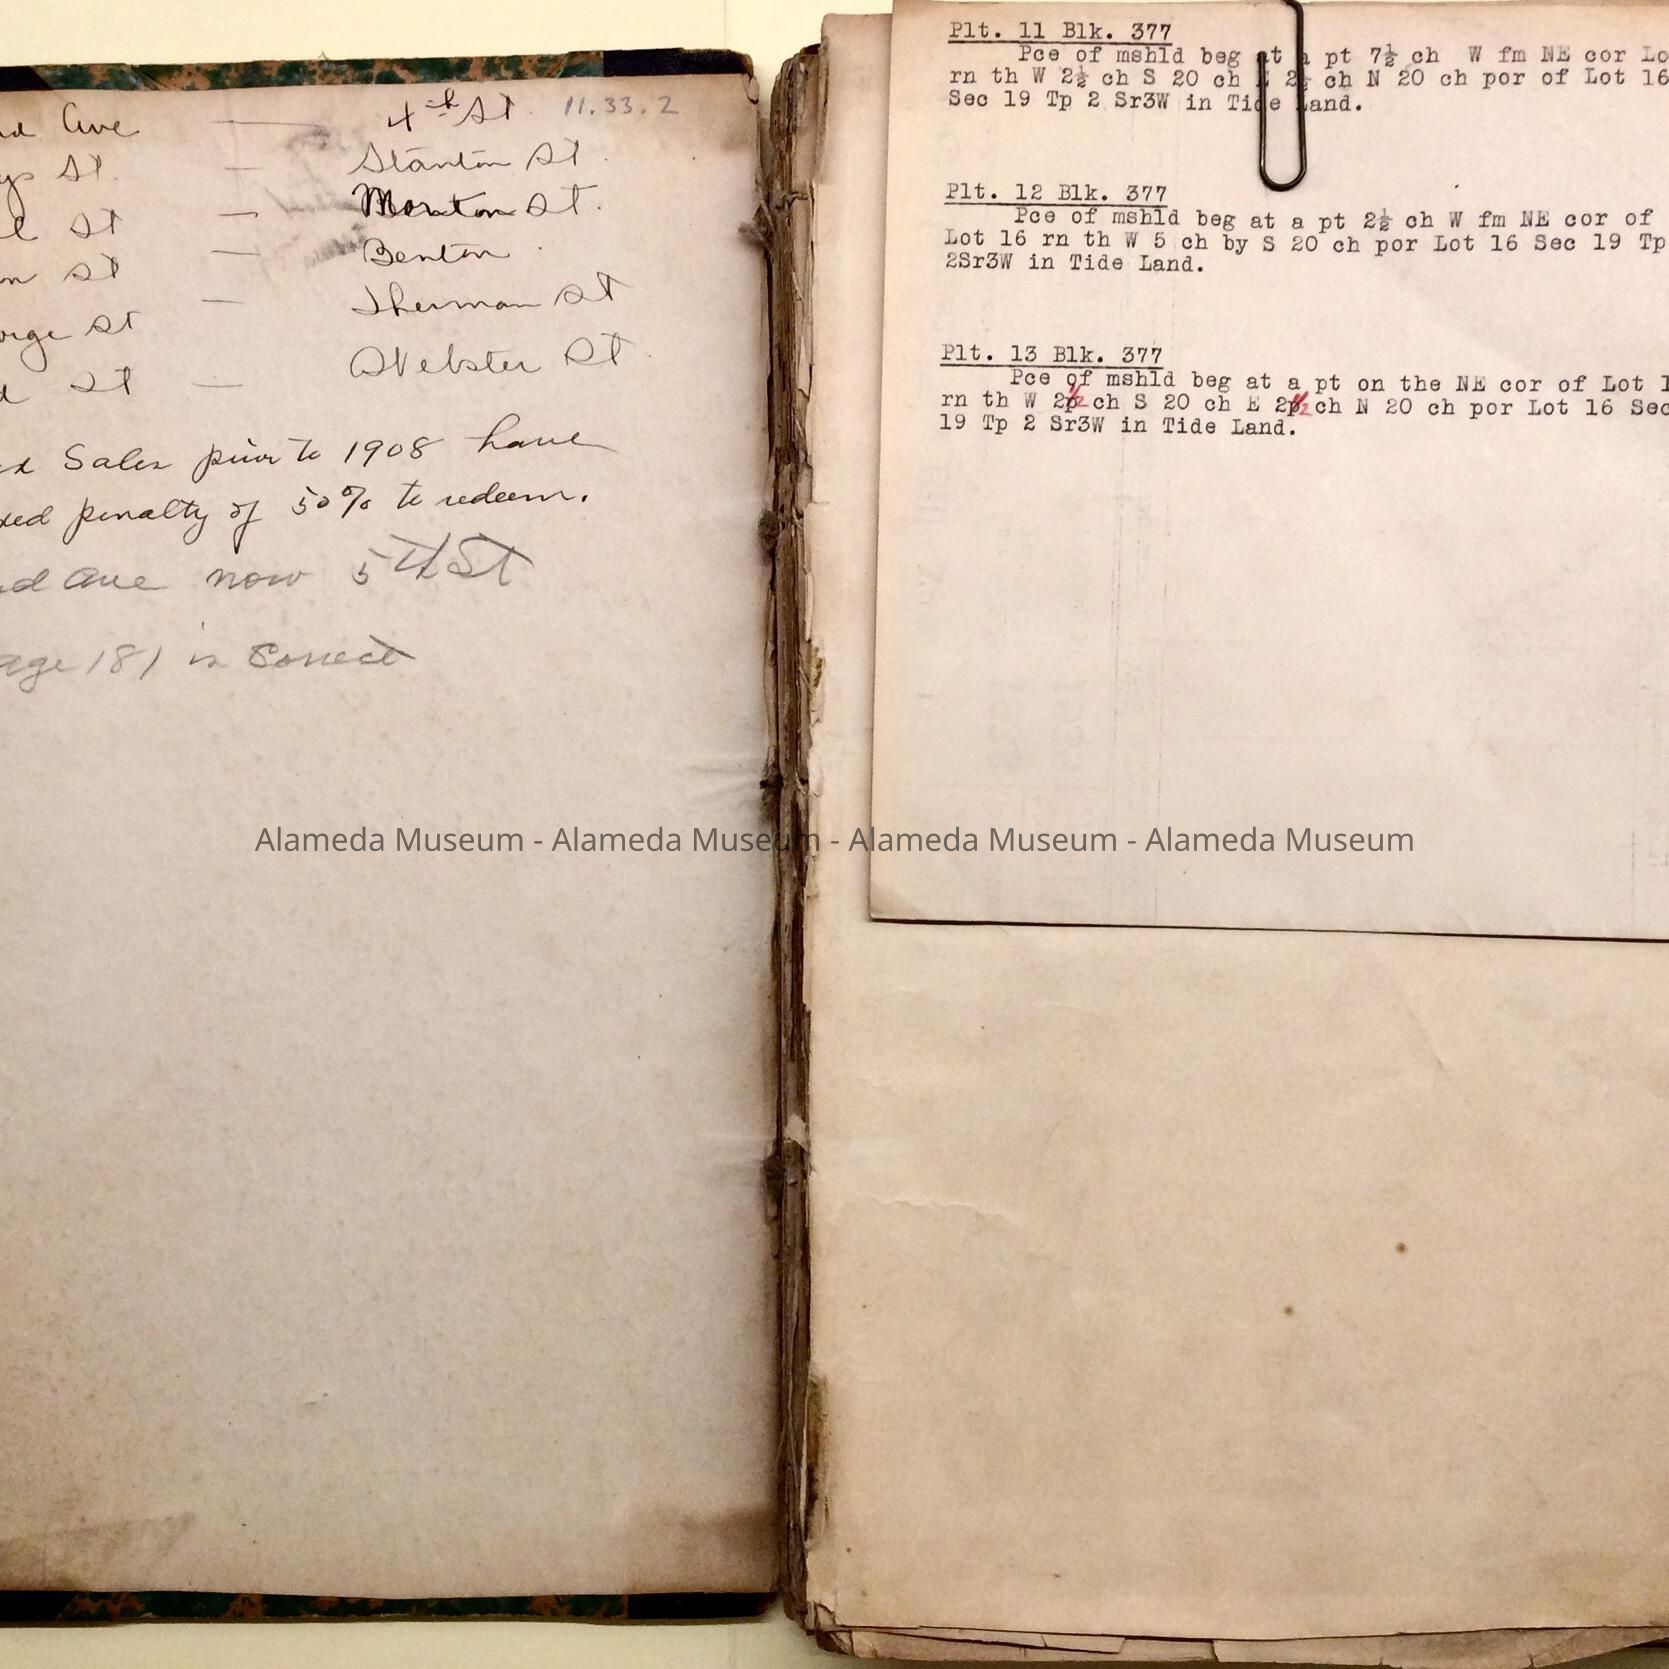 Ave — 4th St. 11.33.2
St. — Stanton St.
St — Morton St.
St — Benton
St — Sherman St
St — Webster St.
Sales prior to 1908 have
penalty of 50% to redeem.
Ave now 5th St
181 is correct
Plt. 11 Blk. 377
Pce of mshld beg at a pt 7½ ch W fm NE cor Lo
rn th W 2½ ch S 20 ch E 2½ ch N 20 ch por of Lot 16
Sec 19 Tp 2 Sr3W in Tide Land.
Plt. 12 Blk. 377
Pce of mshld beg at a pt 2½ ch W fm NE cor of
Lot 16 rn th W 5 ch by S 20 ch por Lot 16 Sec 19 Tp
2Sr3W in Tide Land.
Plt. 13 Blk. 377
Pce of mshld beg at a pt on the NE cor of Lot 1
rn th W 2½ ch S 20 ch E 2½ ch N 20 ch por Lot 16 Sec
19 Tp 2 Sr3W in Tide Land.
Alameda Museum - Alameda Museum - Alameda Museum - Alameda Museum